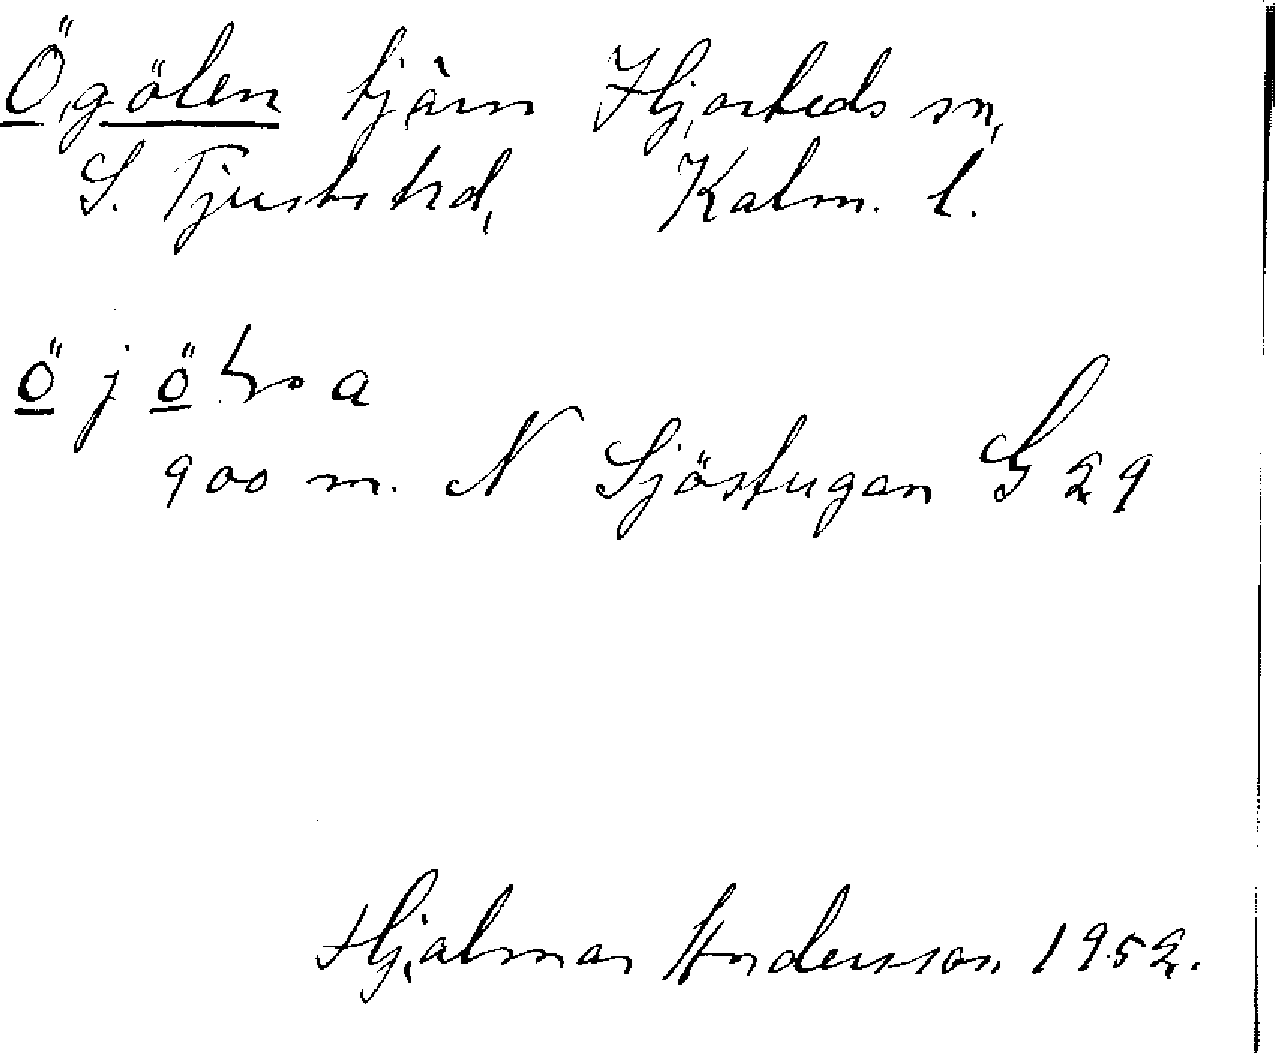 Ögölen tjärn Hjorteds sn,
S. Tjusts hd, Kalm. l.
900 m. N Sjöstugan G 29
Hjalmar Andersson 1952.